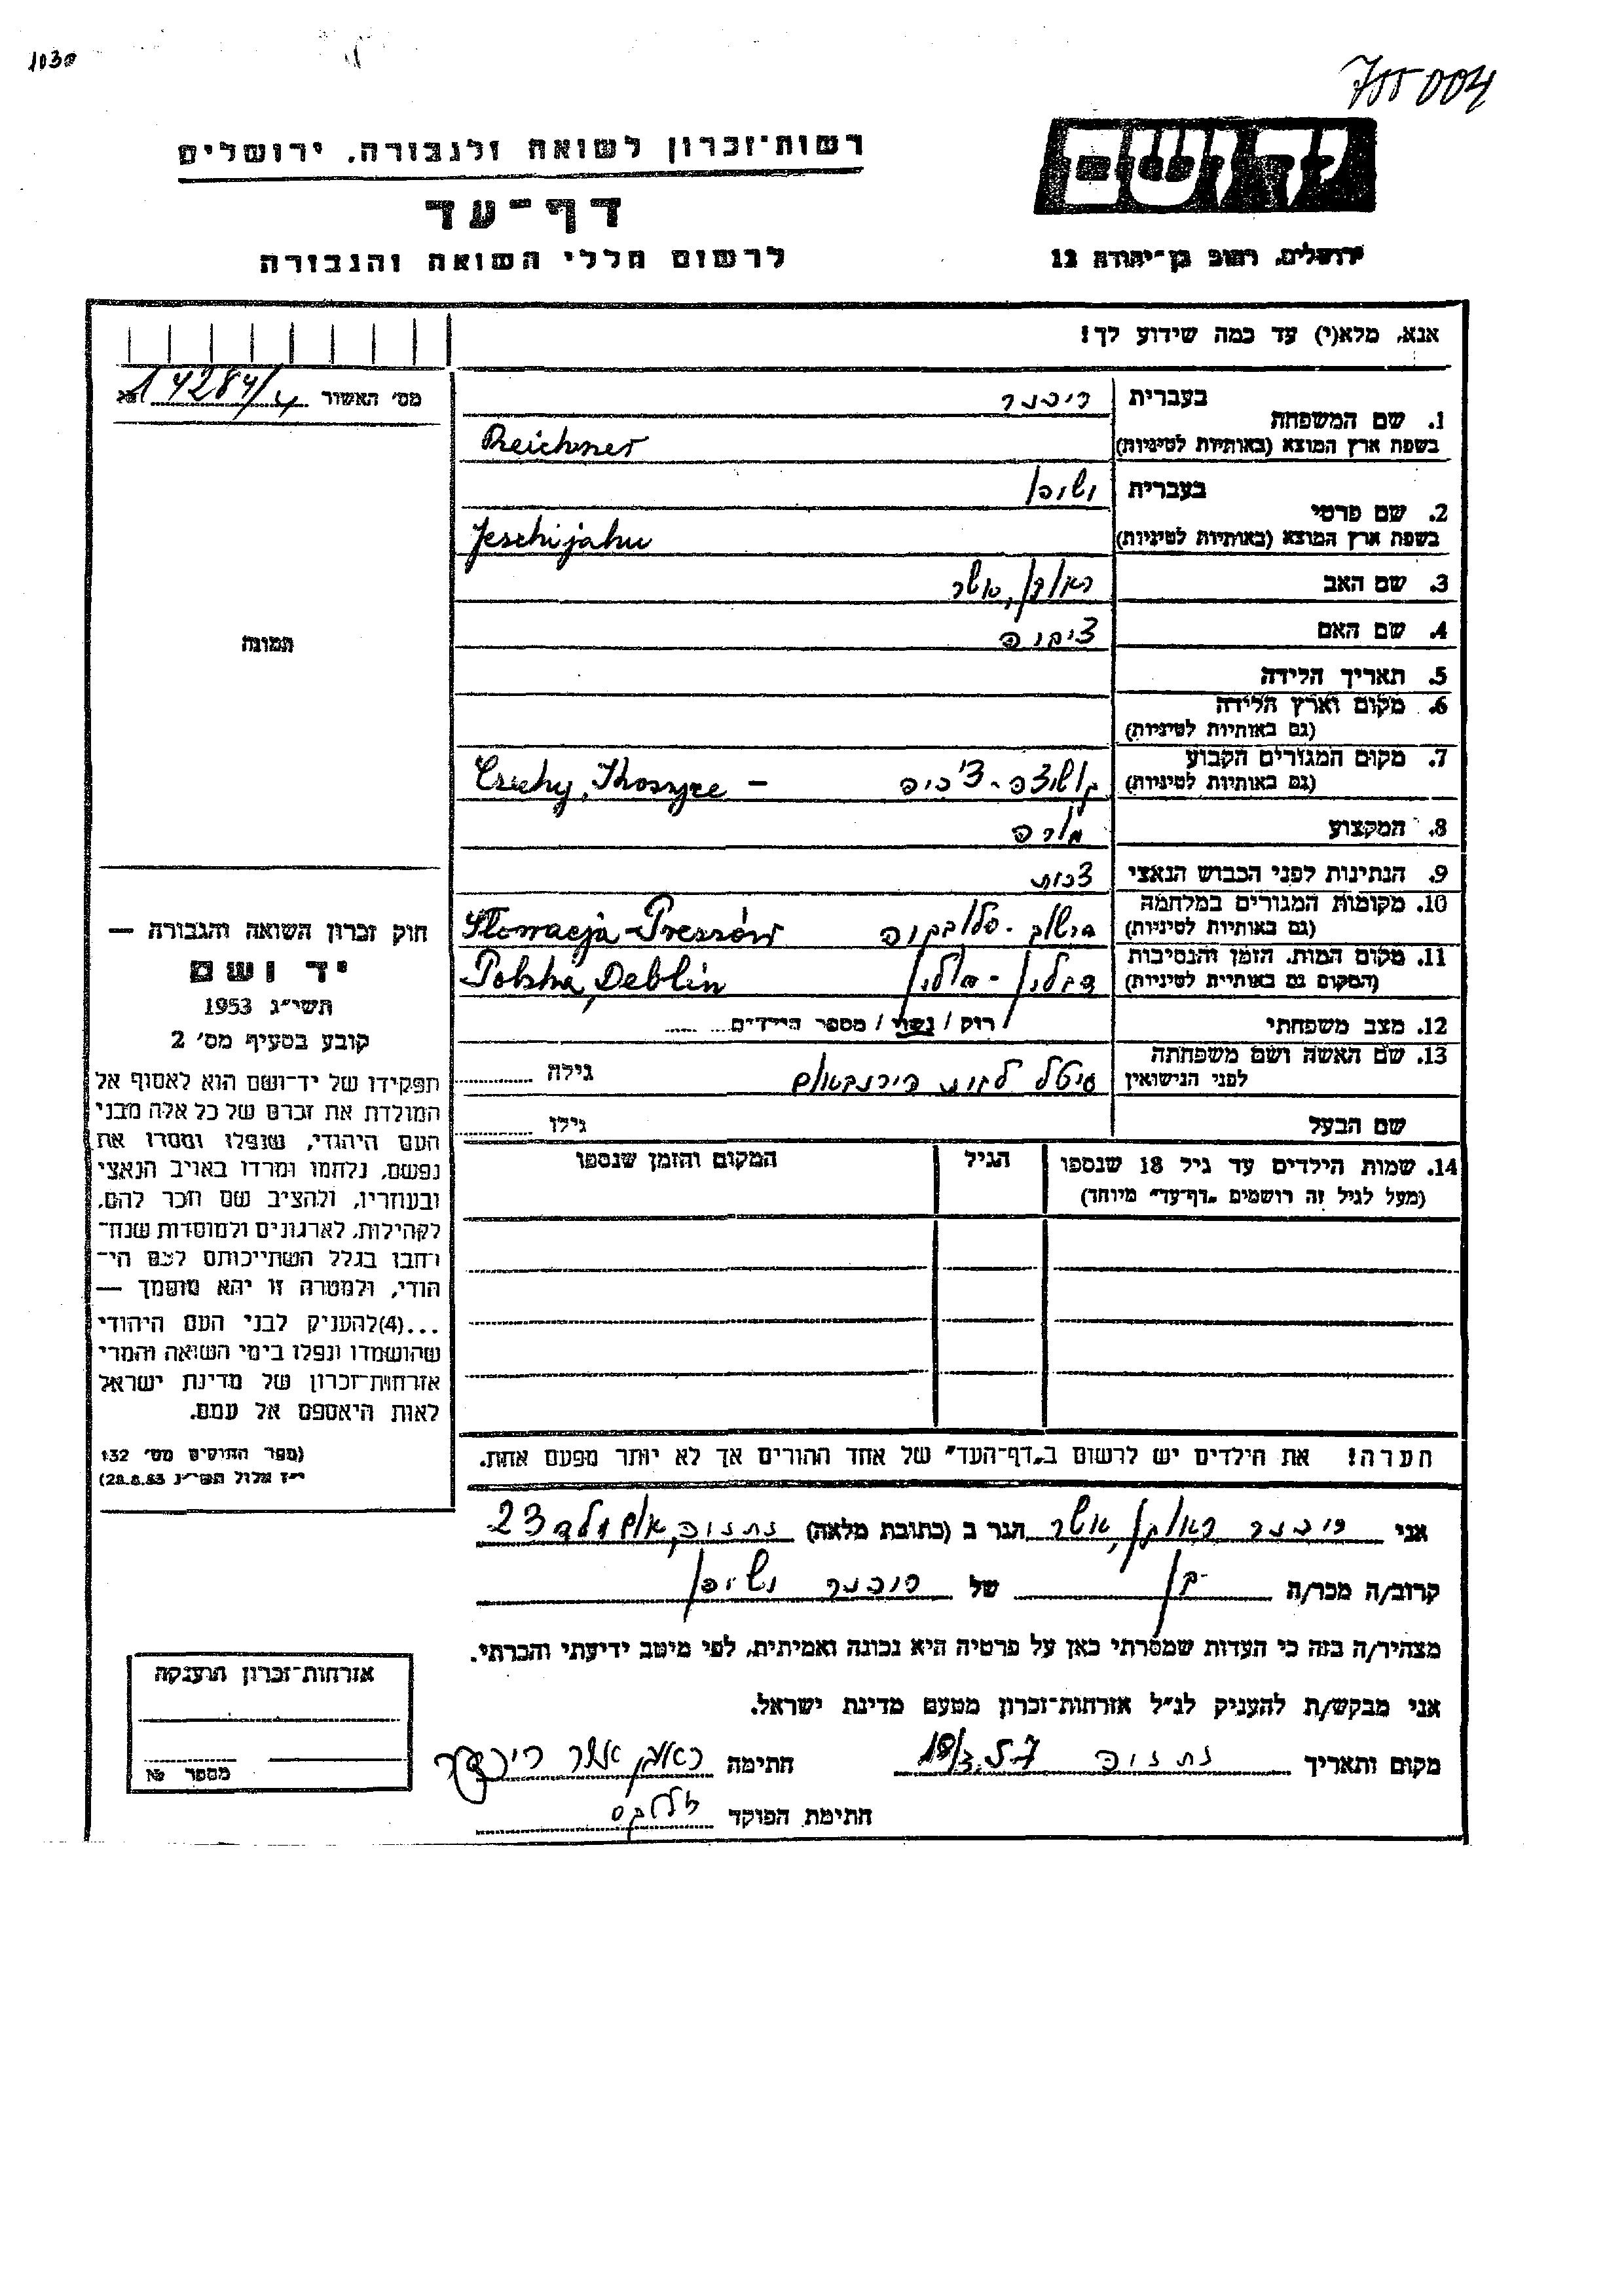 1030
755004
יד ושם
רשות־זכרון לשואה ולגבורה, ירושלים
דף־עד
לרשום חללי השואה והגבורה
ירושלים, רחוב בן־יהודה 12
אנא, מלא(י) עד כמה שידוע לך!
מס' האשור 14284/4 №
1. שם המשפחה בעברית רייכנר
בשפת ארץ המוצא (באותיות לטיניות) Reichner
2. שם פרטי בעברית
בשפת ארץ המוצא (באותיות לטיניות) Jeschijahu
3. שם האב ראובן, אשר
4. שם האם ציפורה
5. תאריך הלידה
6. מקום וארץ הלידה
(גם באותיות לטיניות)
7. מקום המגורים הקבוע קושיצה - צ'כיה
(גם באותיות לטיניות) Czechy, Koszyce –
8. המקצוע מורה
9. הנתינות לפני הכבוש הנאצי צכית
10. מקומות המגורים במלחמה פרשוב - סלובקיה
(גם באותיות לטיניות) Słowacja - Preszów
11. מקום המות, הזמן והנסיבות דבלין - פולין
(המקום גם באותיות לטיניות) Polska, Deblin
12. מצב משפחתי רוק / נשוי / מספר הילדים
13. שם האשה ושם משפחתה
לפני הנישואין גיטל לבית בירנבאום גילה
שם הבעל גילו
14. שמות הילדים עד גיל 18 שנספו הגיל המקום והזמן שנספו
(מעל לגיל זה רושמים „דף־עד" מיוחד)
הערה! את הילדים יש לרשום ב„דף־העד" של אחד ההורים אך לא יותר מפעם אחת.
תמונה
חוק זכרון השואה והגבורה —
יד ושם
תשי"ג 1953
קובע בסעיף מס' 2
תפקידו של יד־ושם הוא לאסוף אל
המולדת את זכרם של כל אלה מבני
העם היהודי, שנפלו ומסרו את
נפשם, נלחמו ומרדו באויב הנאצי
ובעוזריו, ולהציב שם וזכר להם,
לקהילות, לארגונים ולמוסדות שנח־
רבו בגלל השתייכותם לעם הי־
הודי, ולמטרה זו יהא מוסמך —
...(4)להעניק לבני העם היהודי
שהושמדו ונפלו בימי השואה והמרי
אזרחות־זכרון של מדינת ישראל
לאות היאספם אל עמם.
(ספר החוקים מס' 132
י"ז אלול תשי"ג 28.8.53)
אני רייכנר ראובן, אשר הגר ב (כתובת מלאה) נתניה, 23
קרוב/ה מכר/ה בן של רייכנר
מצהיר/ה בזה כי העדות שמסרתי כאן על פרטיה היא נכונה ואמיתית, לפי מיטב ידיעתי והכרתי.
אני מבקש/ת להעניק לנ"ל אזרחות־זכרון מטעם מדינת ישראל.
מקום ותאריך נתניה חתימה ראובן אשר רייכנר
חתימת הפוקד
אזרחות־זכרון הוענקה
מספר №